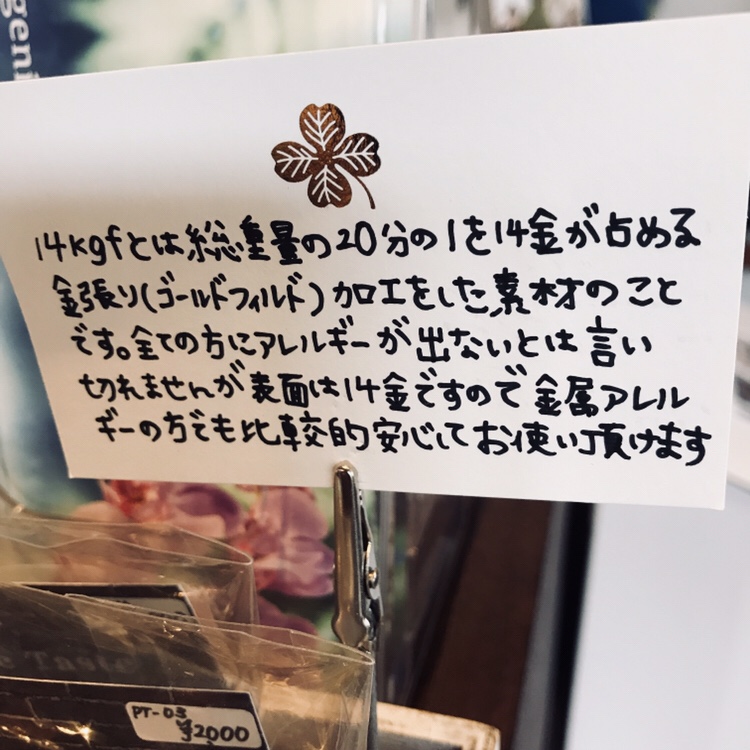 geni
14kgfとは総重量の20分の1を14金が占める
金張り(ゴールドフィルド)加工をした素材のこと
です。全ての方にアレルギーが出ないとは言い
切れませんが表面は14金ですので金属アレル
ギーの方でも比較的安心してお使い頂けます
e Taste
PT-03
¥2000